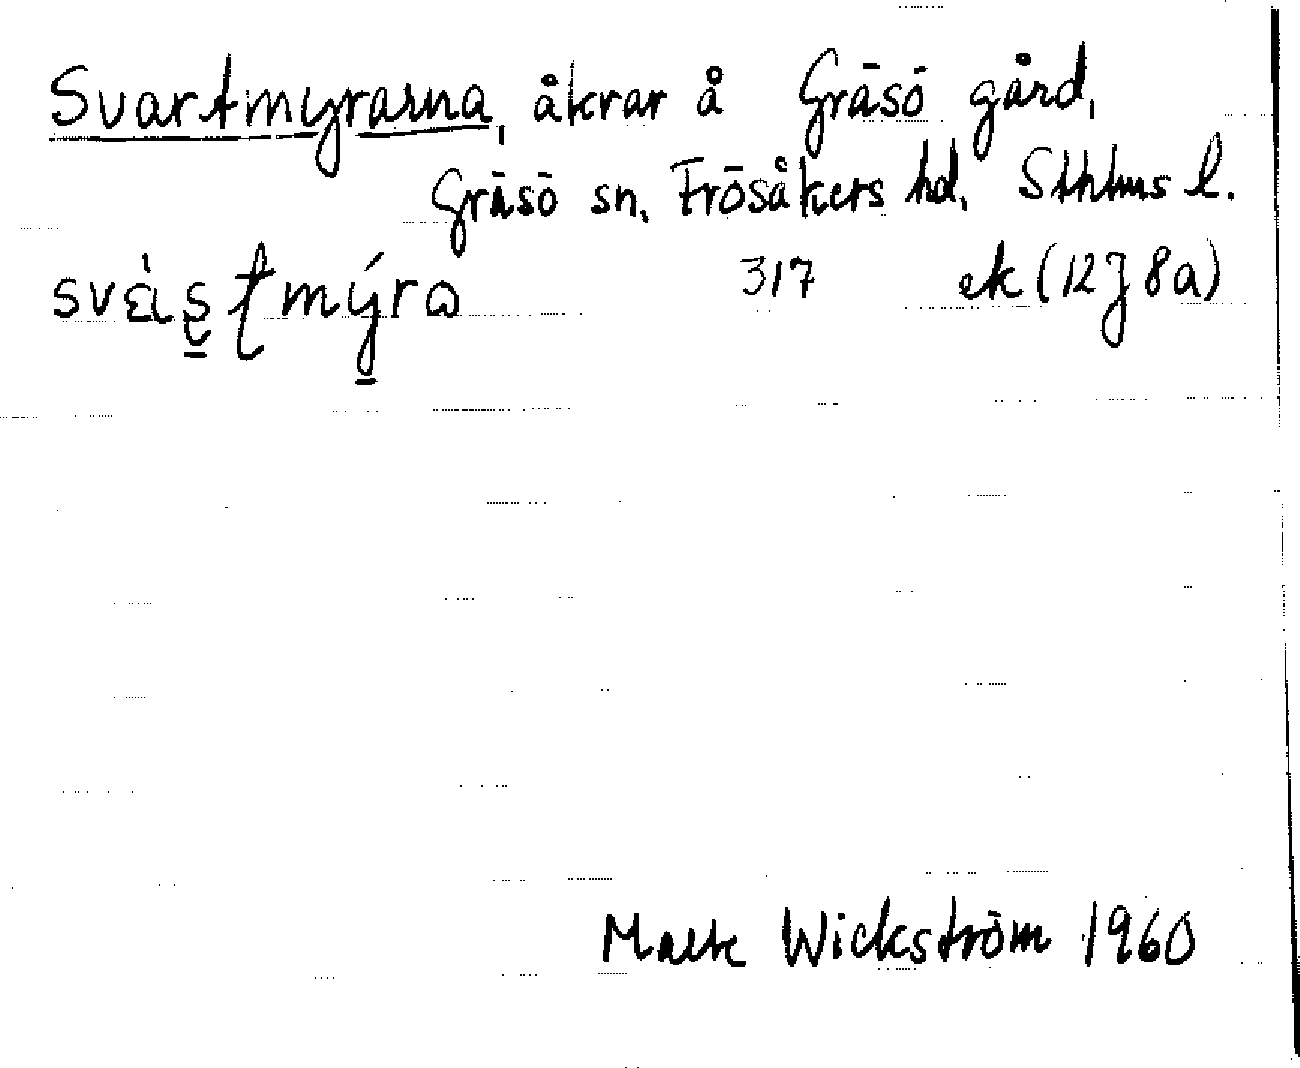 Svartmyrarna, åkrar å Gräsö gård,
Gräsö sn. Frösåkers hd. Sthlms l.
317 ek (12J 8a)
Wickström 1960